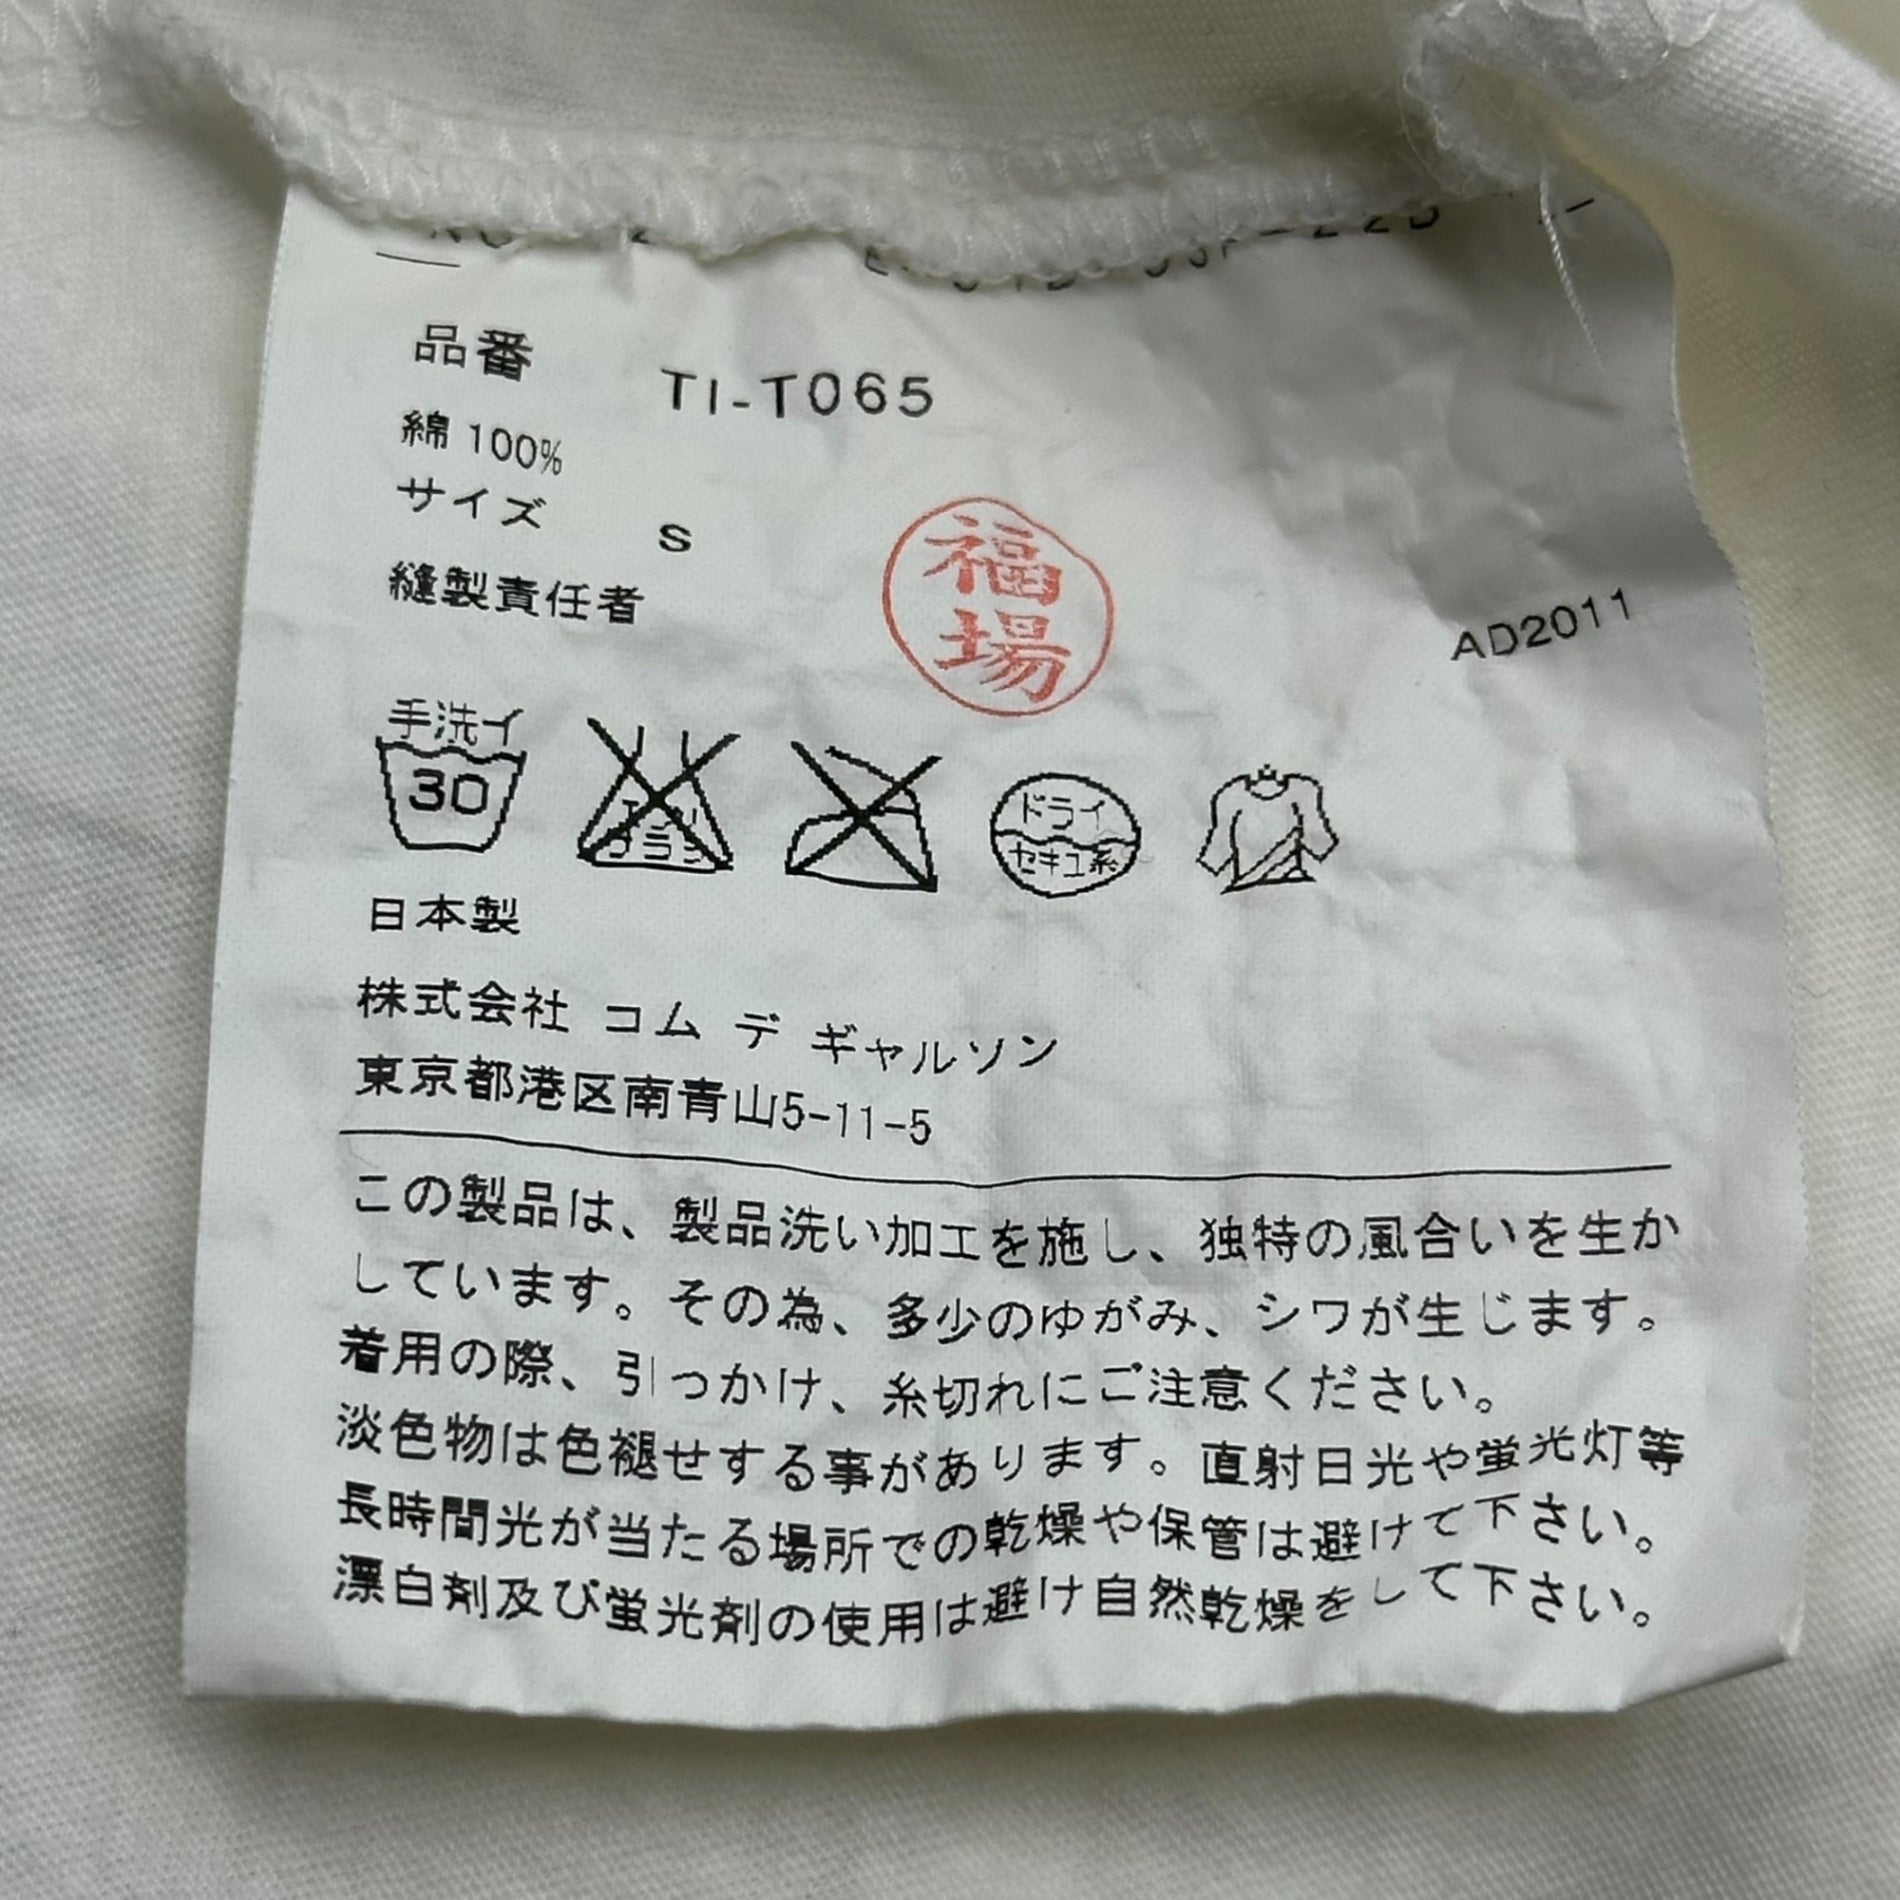 品番 TI-T065
綿 100%
サイズ S
縫製責任者
福場
AD2011
手洗イ
30
エンソ
サラシ
ドライ
セキユ系
日本製
株式会社 コム デ ギャルソン
東京都港区南青山5-11-5
この製品は、製品洗い加工を施し、独特の風合いを生か
しています。その為、多少のゆがみ、シワが生じます。
着用の際、引っかけ、糸切れにご注意ください。
淡色物は色褪せする事があります。直射日光や蛍光灯等
長時間光が当たる場所での乾燥や保管は避けて下さい。
漂白剤及び蛍光剤の使用は避け自然乾燥をして下さい。